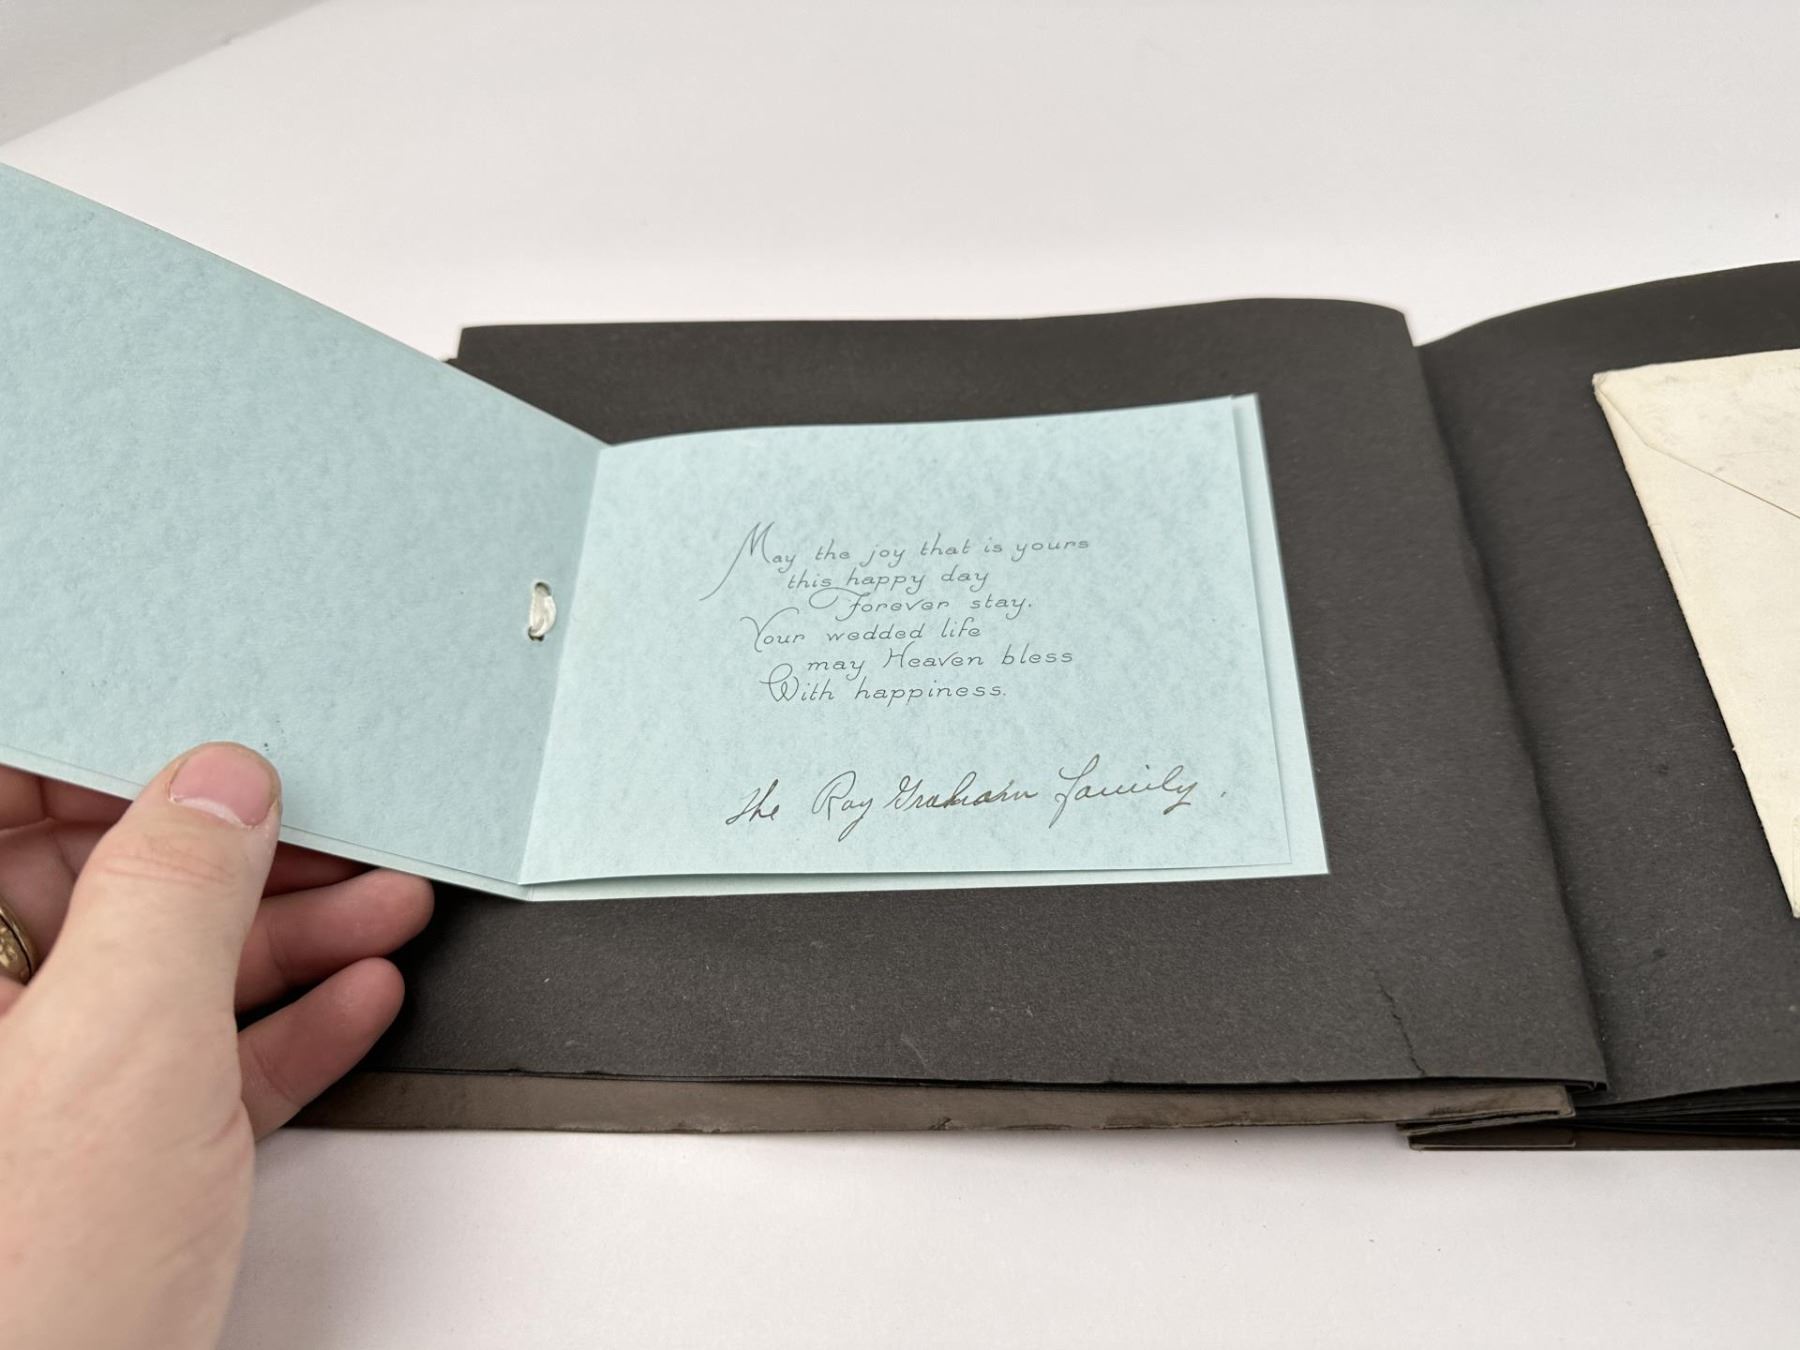 May the joy that is yours
this happy day
Forever stay.
Your wedded life
may Heaven bless
With happiness.
The Ray Graham family.